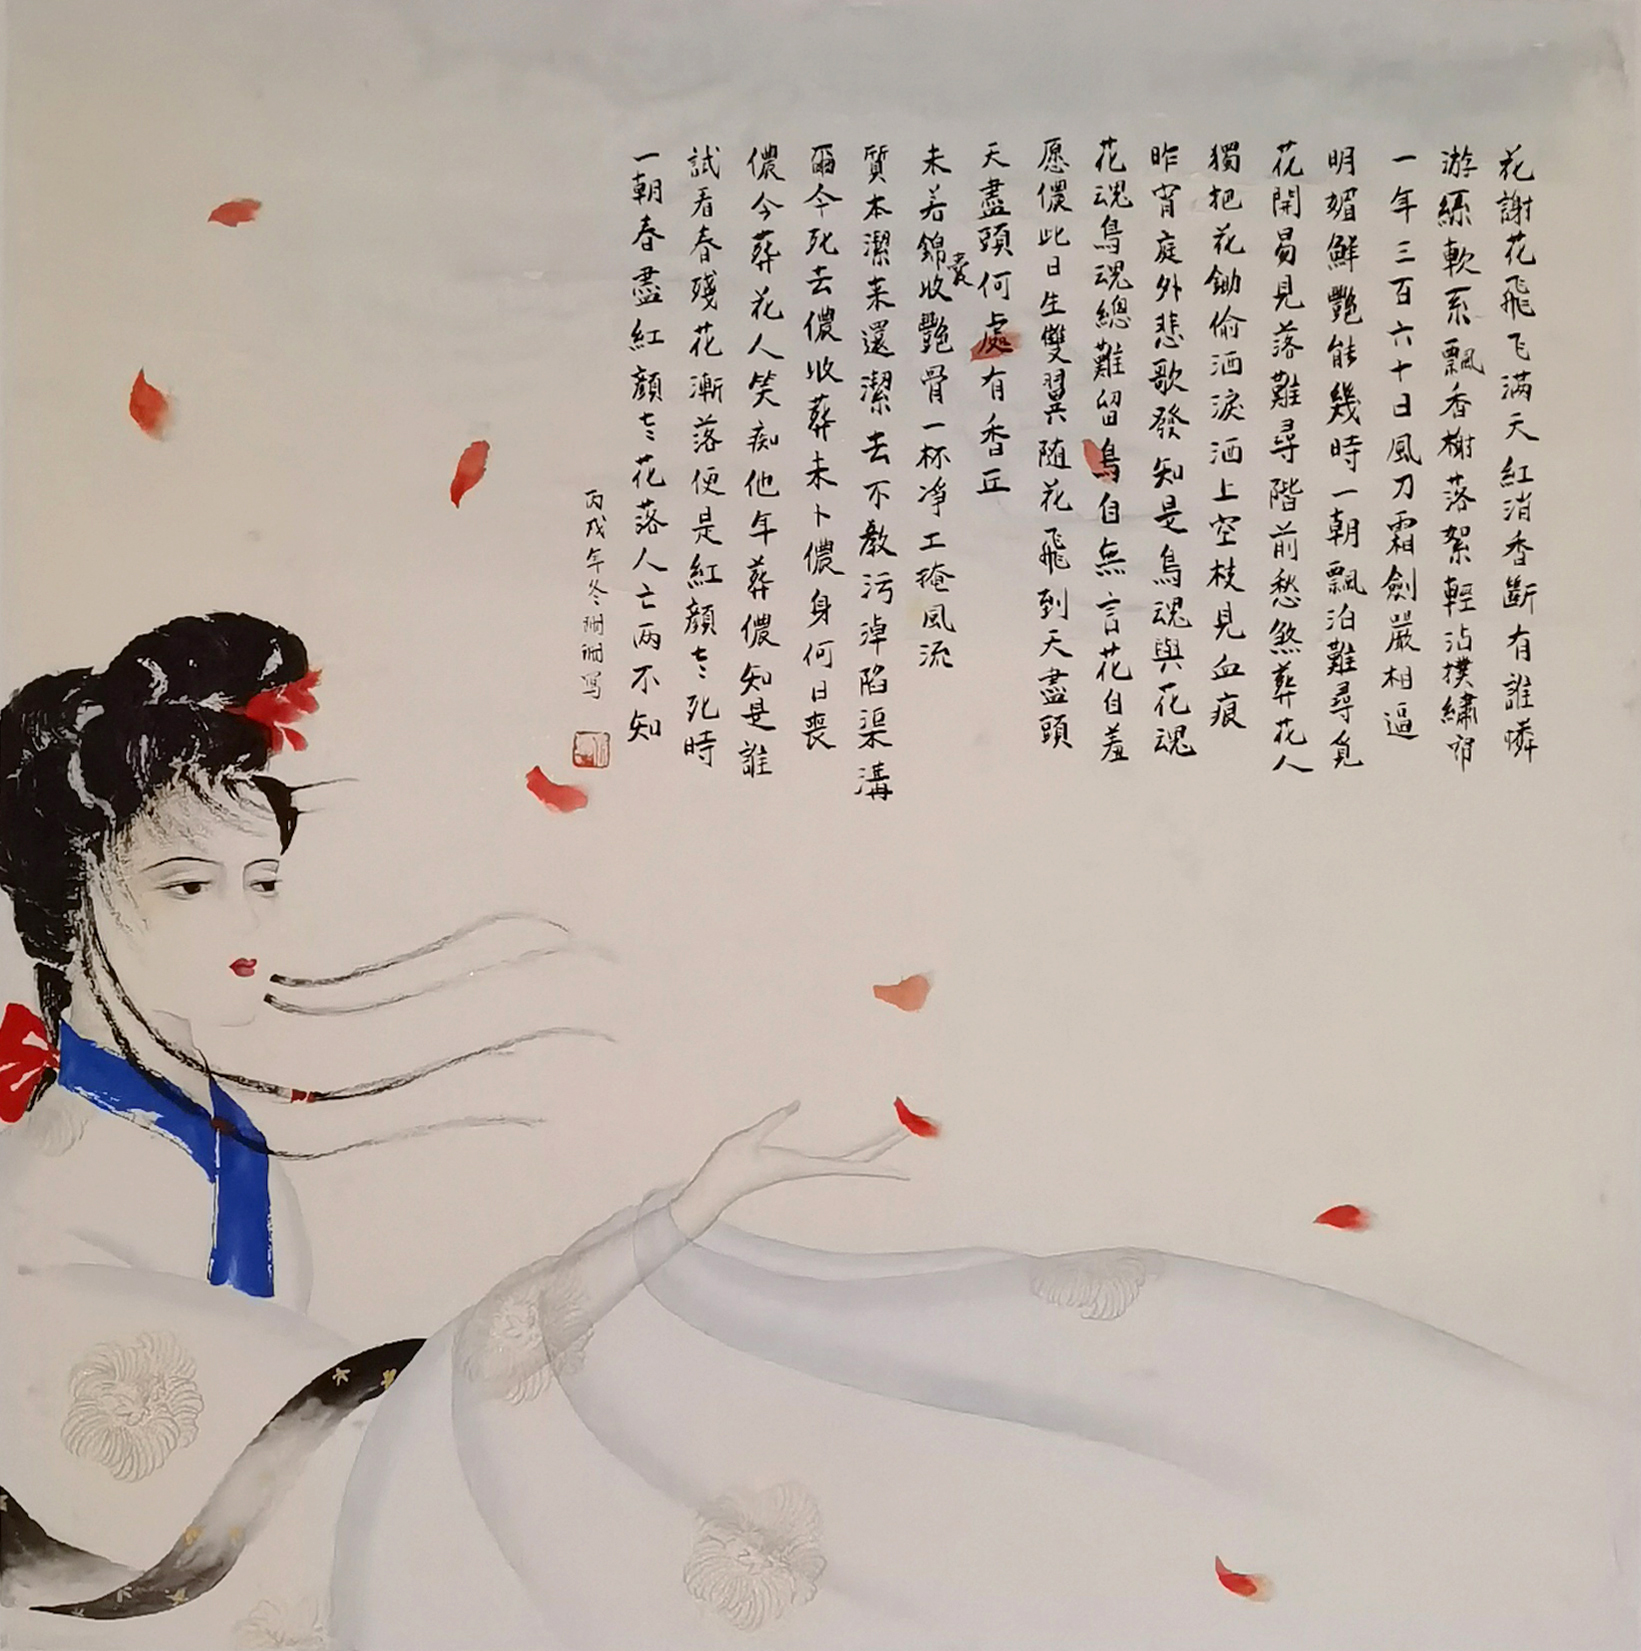 花謝花飛飞满天紅消香斷有誰憐
游絲軟系飄香榭落絮輕沾撲繡帘
一年三百六十日風刀霜劍嚴相逼
明媚鮮艷能幾時一朝飄泊難尋覓
花開易見落難尋階前愁煞葬花人
獨把花鋤偷洒淚洒上空枝見血痕
昨宵庭外悲歌發知是鳥魂與花魂
花魂鳥魂總難留鳥自無言花自羞
愿儂此日生雙翼随花飛到天盡頭
天盡頭何處有香丘
未若錦囊收艷骨一杯凈工掩風流
質本潔来還潔去不教污淖陷渠溝
爾今死去儂收葬未卜儂身何日喪
儂今葬花人笑痴他年葬儂知是誰
試看春殘花漸落便是紅顔老死時
一朝春盡紅顔老花落人亡两不知
丙戌年冬珊珊写